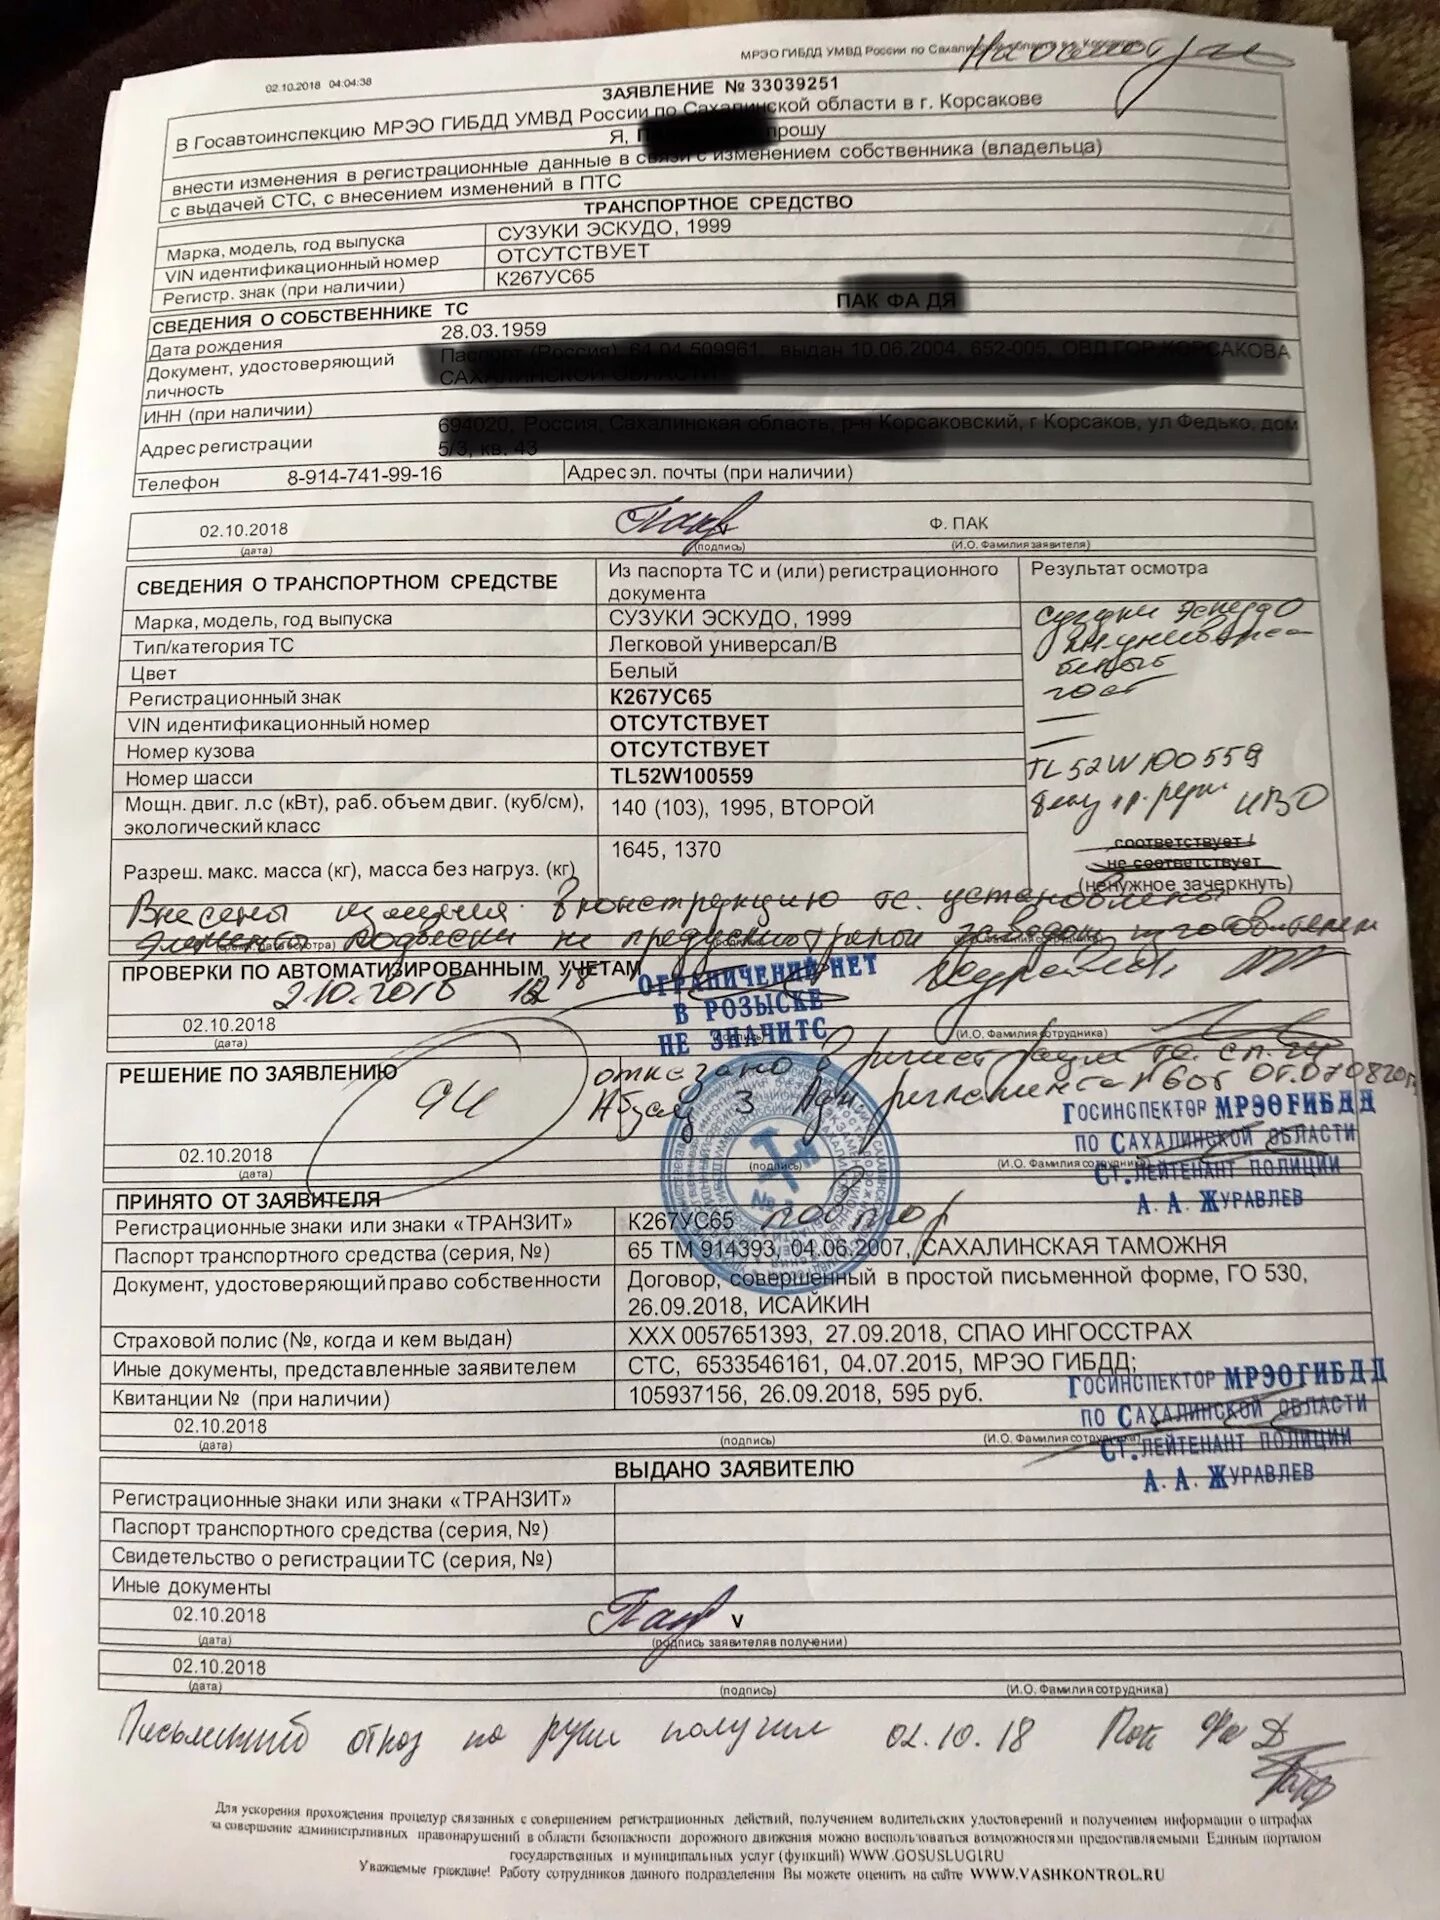 МРЭО ГИБДД УМВД России по Сахалинской области в г. Корсакове
02.10.2018 04:04:38
На осмотр
ЗАЯВЛЕНИЕ № 33039251
В Госавтоинспекцию МРЭО ГИБДД УМВД России по Сахалинской области в г. Корсакове
Я, прошу
внести изменения в регистрационные данные в связи с изменением собственника (владельца)
с выдачей СТС, с внесением изменений в ПТС
ТРАНСПОРТНОЕ СРЕДСТВО
Марка, модель, год выпуска СУЗУКИ ЭСКУДО, 1999
VIN идентификационный номер ОТСУТСТВУЕТ
Регистр. знак (при наличии) К267УС65
СВЕДЕНИЯ О СОБСТВЕННИКЕ ТС
Дата рождения 28.03.1959
Документ, удостоверяющий
личность
ИНН (при наличии)
Адрес регистрации
Телефон 8-914-741-99-16 Адрес эл. почты (при наличии)
02.10.2018 Ф. ПАК
(дата) (подпись) (И.О. Фамилия заявителя)
СВЕДЕНИЯ О ТРАНСПОРТНОМ СРЕДСТВЕ Из паспорта ТС и (или) регистрационного документа Результат осмотра
Марка, модель, год выпуска СУЗУКИ ЭСКУДО, 1999 Сузуки Эскудо
Тип/категория ТС Легковой универсал/В
Цвет Белый белый
Регистрационный знак К267УС65 гост
VIN идентификационный номер ОТСУТСТВУЕТ
Номер кузова ОТСУТСТВУЕТ
Номер шасси TL52W100559 TL52W100559
Мощн. двиг. л.с (кВт), раб. объем двиг. (куб/см),
экологический класс 140 (103), 1995, ВТОРОЙ
Разреш. макс. масса (кг), масса без нагруз. (кг) 1645, 1370
соответствует /
не соответствует
(ненужное зачеркнуть)
Внесены изменения в конструкцию тс. установлены
элементы подвески не предусмотреной заводом изготовителем
ПРОВЕРКИ ПО АВТОМАТИЗИРОВАННЫМ УЧЕТАМ
ОГРАНИЧЕНИЙ НЕТ
В РОЗЫСКЕ
НЕ ЗНАЧИТС
2.10.2018
02.10.2018
(дата) (И.О. Фамилия сотрудника)
РЕШЕНИЕ ПО ЗАЯВЛЕНИЮ
отказано в регистрации тс. сп. 24
Абзац 3 Адм регламента № 605 от 07.08.20
ГОСИНСПЕКТОР МРЭО ГИБДД
ПО САХАЛИНСКОЙ ОБЛАСТИ
СТ. ЛЕЙТЕНАНТ ПОЛИЦИИ
А. А. ЖУРАВЛЕВ
02.10.2018
(дата) (подпись) (И.О. Фамилия сотрудника)
ПРИНЯТО ОТ ЗАЯВИТЕЛЯ
Регистрационные знаки или знаки «ТРАНЗИТ» К267УС65
Паспорт транспортного средства (серия, №) 65 ТМ 914393, 04.06.2007, САХАЛИНСКАЯ ТАМОЖНЯ
Документ, удостоверяющий право собственности Договор, совершенный в простой письменной форме, ГО 530,
26.09.2018, ИСАЙКИН
Страховой полис (№, когда и кем выдан) ХХХ 0057651393, 27.09.2018, СПАО ИНГОССТРАХ
Иные документы, представленные заявителем СТС, 6533546161, 04.07.2015, МРЭО ГИБДД;
Квитанции № (при наличии) 105937156, 26.09.2018, 595 руб.
ГОСИНСПЕКТОР МРЭО ГИБДД
ПО САХАЛИНСКОЙ ОБЛАСТИ
СТ. ЛЕЙТЕНАНТ ПОЛИЦИИ
А. А. ЖУРАВЛЕВ
02.10.2018
(дата) (подпись) (И.О. Фамилия сотрудника)
ВЫДАНО ЗАЯВИТЕЛЮ
Регистрационные знаки или знаки «ТРАНЗИТ»
Паспорт транспортного средства (серия, №)
Свидетельство о регистрации ТС (серия, №)
Иные документы
02.10.2018 V
(дата) (подпись заявителя в получении)
02.10.2018
(дата) (подпись) (И.О. Фамилия сотрудника)
Письменный отказ на руки получил 02.10.18 Пак Фа Д
Для ускорения прохождения процедур связанных с совершением регистрационных действий, получением водительских удостоверений и получением информации о штрафах
за совершение административных правонарушений в области безопасности дорожного движения можно воспользоваться возможностями предоставляемыми Единым порталом
государственных и муниципальных услуг (функций) WWW.GOSUSLUGI.RU
Уважаемые граждане! Работу сотрудников данного подразделения Вы можете оценить на сайте WWW.VASHKONTROL.RU